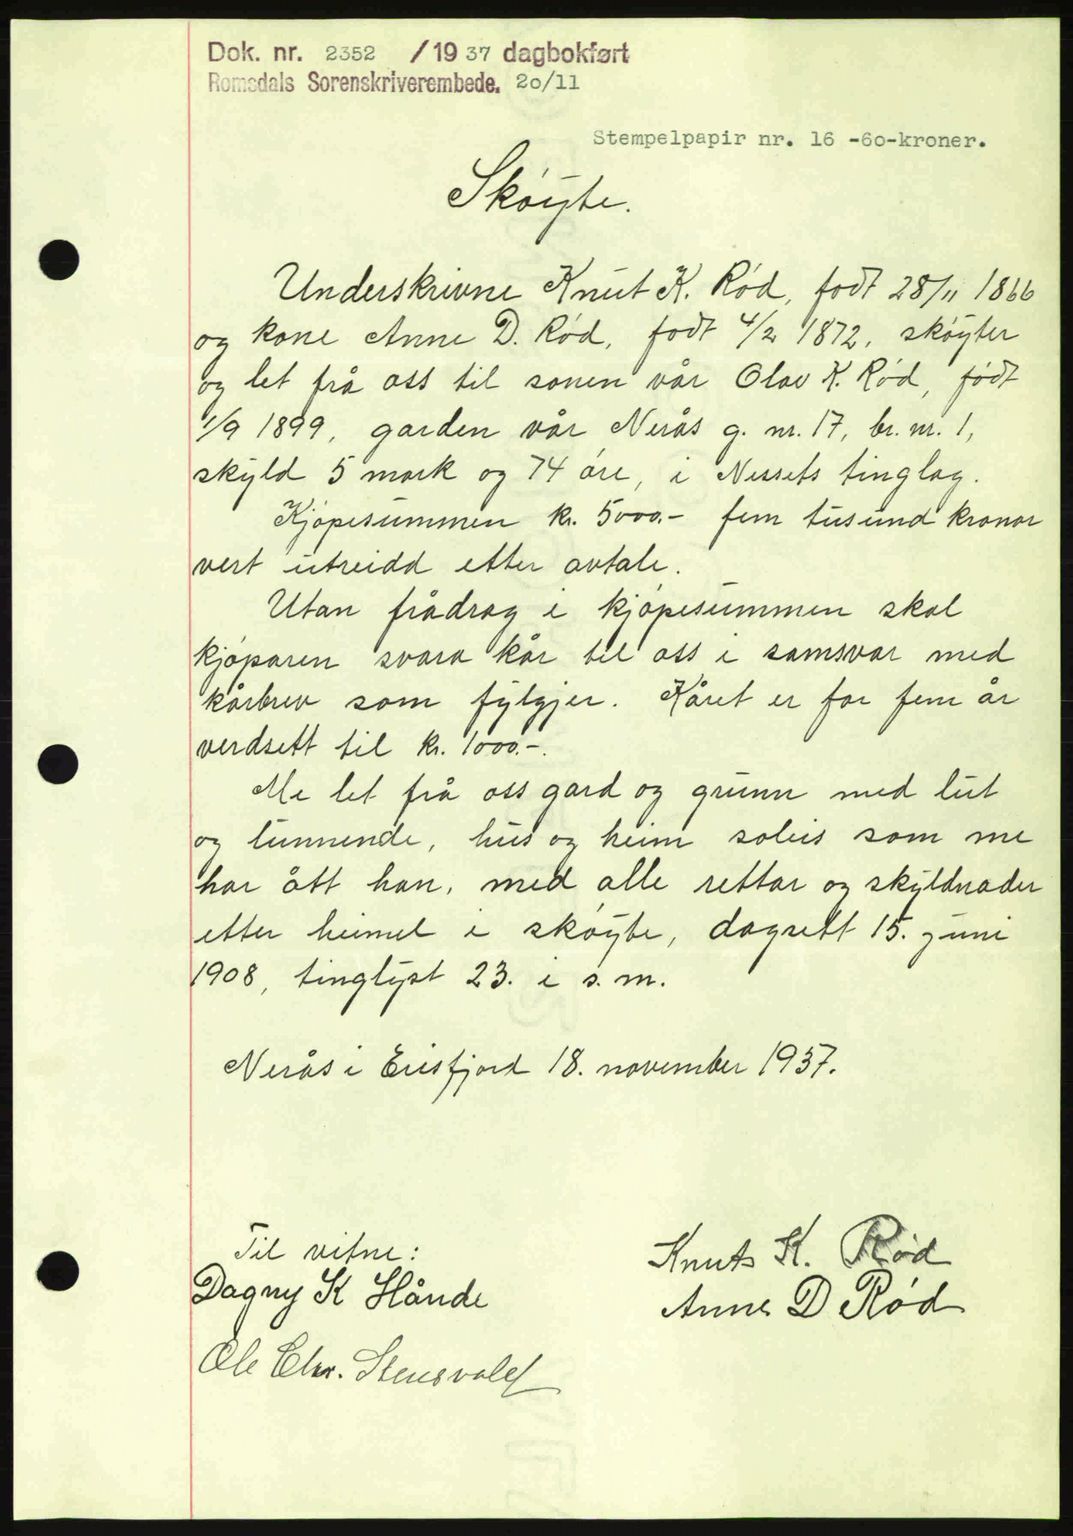 Dok. nr. 2352 / 19 37 dagbokført
Romsdals Sorenskriverembede. 20/11
Stempelpapir nr. 16 -60-kroner.
Skøyte.
Underskrivne Knut K. Rød, født 28/11 1866
og kone Anne D. Rød, født 4/2 1872, skøyter
og let frå oss til sonen vår Olav K. Rød, født
1/9 1899, garden vår Nerås g. nr. 17, br. nr. 1,
skyld 5 mark og 74 øre, i Nessets tinglag.
Kjøpesummen kr. 5000.- fem tusund kronor
vert utreidd etter avtale.
Utan frådrag i kjøpesummen skal
kjøparen svara kår til oss i samsvar med
kårbrev som fylgjer. Kåret er for fem år
verdsett til kr. 1000.-.
Me let frå oss gard og grunn med lut
og lunnende, hus og heim soleis som me
har ått han, med alle rettar og skyldnader
etter heimel i skøyte, dagsett 15. juni
1908, tinglyst 23. i s. m.
Nerås i Eresfjord 18. november 1937.
Til vitne:
Knut K. Rød
Dagny K Hånde
Anne D Rød
Ole Chr. Stensvold